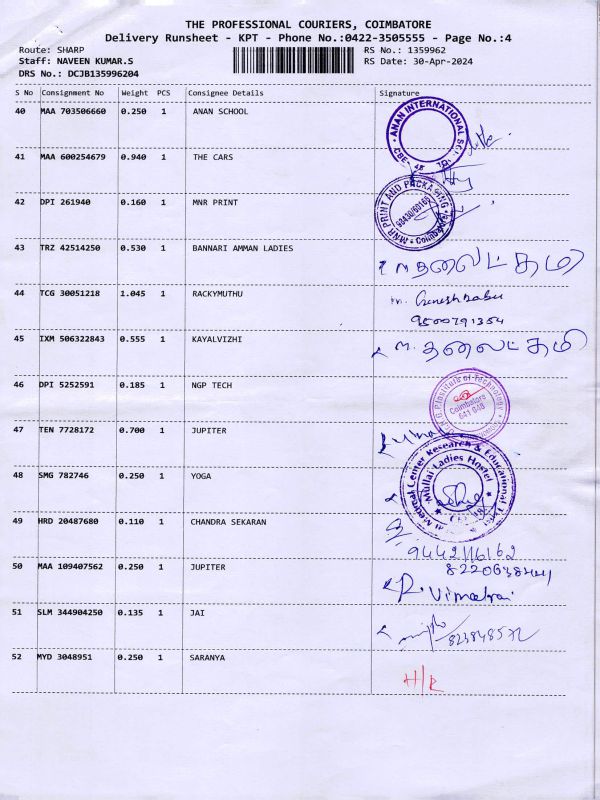 THE PROFESSIONAL COURIERS, COIMBATORE
Delivery Runsheet - KPT - Phone No.:0422-3505555 - Page No.:4
Route: SHARP RS No.: 1359962
Staff: NAVEEN KUMAR.S RS Date: 30-Apr-2024
DRS No.: DCJB135996204
S No Consignment No Weight PCS Consignee Details Signature
40 MAA 703506660 0.250 1 ANAN SCHOOL
ANAN INTERNATIONAL
41 MAA 600254679 0.940 1 THE CARS
42 DPI 261940 0.160 1 MNR PRINT
MNR PRINT AND PACKAGING
43 TRZ 42514250 0.530 1 BANNARI AMMAN LADIES
44 TCG 30051218 1.045 1 RACKYMUTHU
m. Ganeshbabu
9500791354
45 IXM 506322843 0.555 1 KAYALVIZHI
46 DPI 5252591 0.185 1 NGP TECH
Institute of Technology
Coimbatore
641 048
47 TEN 7728172 0.700 1 JUPITER
48 SMG 782746 0.250 1 YOGA
Medical Center Research & Educational
Mullai Ladies Hostel
49 HRD 20487680 0.110 1 CHANDRA SEKARAN
9442116162
50 MAA 109407562 0.250 1 JUPITER
51 SLM 344904250 0.135 1 JAI
52 MYD 3048951 0.250 1 SARANYA
H/R